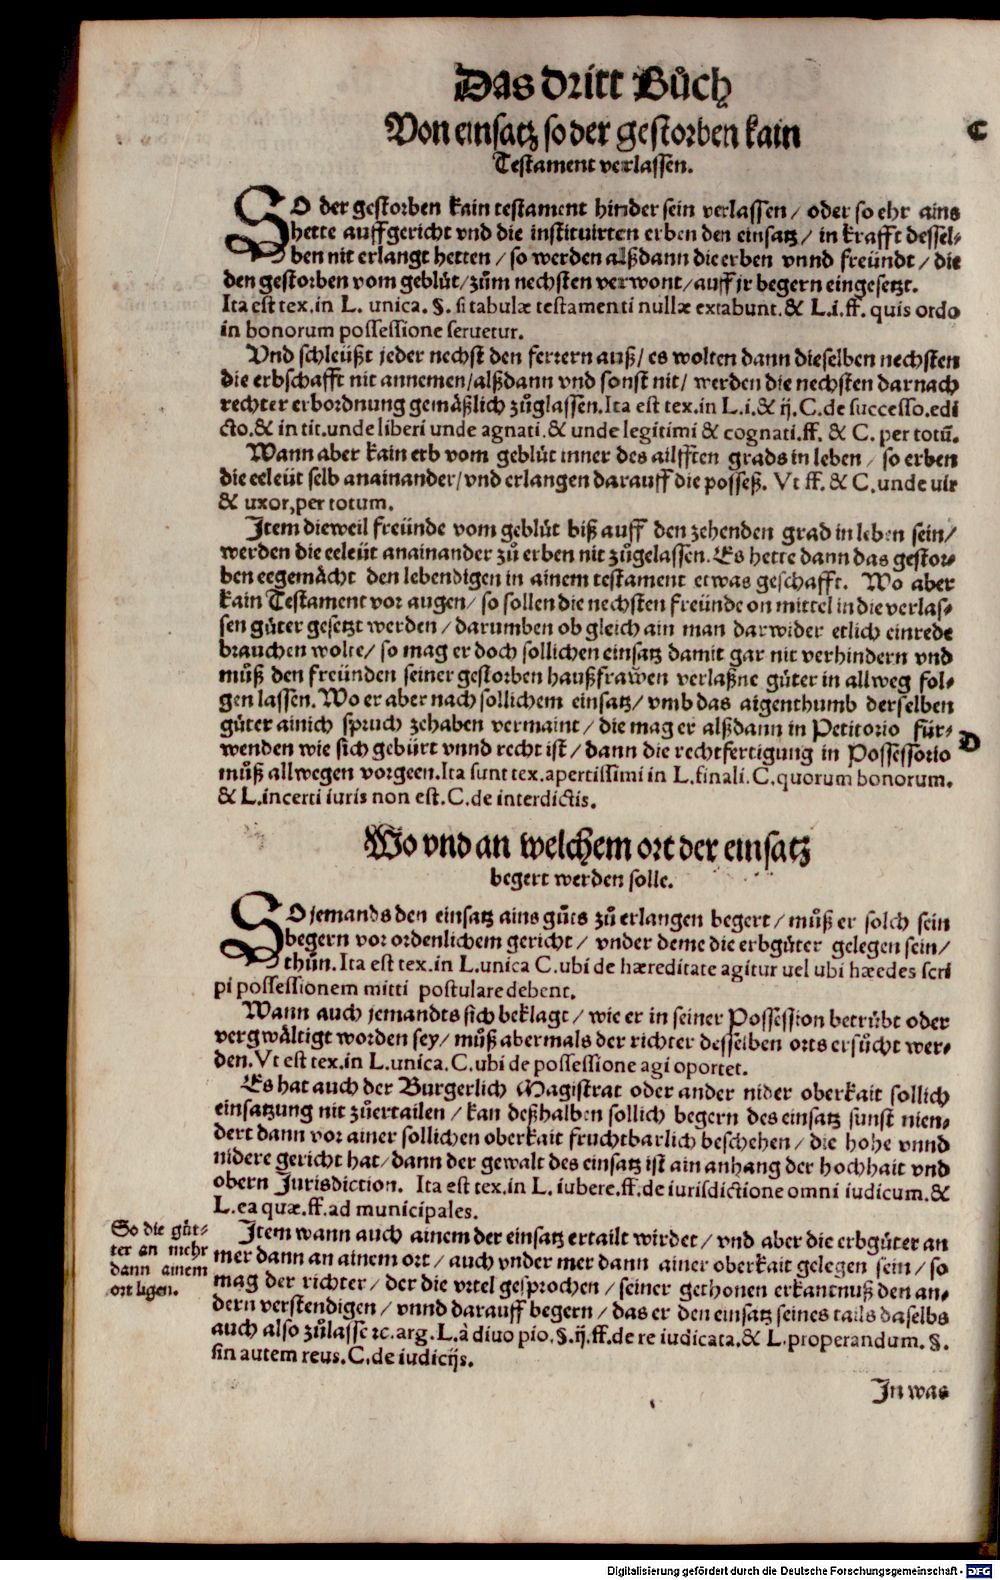 Das dritt Bůch
Von einsatz so der gestorben kain
C
Testament verlassen.
SO der gestorben kain testament hinder sein verlassen / oder so ehr ains
hette auffgericht vnd die instituirten erben den einsatz / in krafft dessel-
ben nit erlangt hetten / so werden alßdann die erben vnnd freündt / die
den gestorben vom geblüt / zům nechsten verwont / auff jr begern eingesetzt.
Ita est tex. in L. unica. §. si tabulæ testamenti nullæ extabunt. & L. i. ff. quis ordo
in bonorum possessione seruetur.
Vnd schleüßt jeder nechst den ferrern auß / es wolten dann dieselben nechsten
die erbschafft nit annemen / alßdann vnd sonst nit / werden die nechsten darnach
rechter erbordnung gemäßlich zůglassen. Ita est tex. in L. i. & ij. C. de successo. edi
cto. & in tit. unde liberi unde agnati. & unde legitimi & cognati. ff. & C. per totū.
Wann aber kain erb vom geblüt inner des ailfften grads in leben / so erben
die eeleüt selb anainander / vnd erlangen darauff die posseß. Vt ff. & C. unde uir
& uxor, per totum.
Item dieweil freünde vom geblüt biß auff den zehenden grad in leben sein /
werden die eeleüt anainander zů erben nit zůgelassen. Es hette dann das gestor-
ben eegemächt den lebendigen in ainem testament etwas geschafft. Wo aber
kain Testament vor augen / so sollen die nechsten freünde on mittel in die verlas-
sen güter gesetzt werden / darumben ob gleich ain man darwider etlich einrede
brauchen wolte / so mag er doch sollichen einsatz damit gar nit verhindern vnd
můß den freünden seiner gestorben haußfrawen verlaßne güter in allweg fol-
gen lassen. Wo er aber nach sollichem einsatz / vmb das aigenthumb derselben
güter ainich spruch zehaben vermaint / die mag er alßdann in Petitorio für-
D
wenden wie sich gebürt vnnd recht ist / dann die rechtfertigung in Possessorio
můß allwegen vorgeen. Ita sunt tex. apertissimi in L. finali. C. quorum bonorum.
& L. incerti iuris non est. C. de interdictis.
Wo vnd an welchem ort der einsatz
begert werden solle.
SO jemands den einsatz ains gůts zů erlangen begert / můß er solch sein
begern vor ordenlichem gericht / vnder deme die erbgüter gelegen sein /
thůn. Ita est tex. in L. unica C. ubi de hæreditate agitur uel ubi hæedes scri
pi possessionem mitti postulare debent.
Wann auch jemandts sich beklagt / wie er in seiner Possession betrübt oder
vergwältigt worden sey / můß abermals der richter desselben orts ersůcht wer-
den. Vt est tex. in L. unica. C. ubi de possessione agi oportet.
Es hat auch der Burgerlich Magistrat oder ander nider oberkait sollich
einsatzung nit zůertailen / kan deßhalben sollich begern des einsatz sunst nien-
dert dann vor ainer sollichen oberkait fruchtbarlich beschehen / die hohe vnnd
nidere gericht hat / dann der gewalt des einsatz ist ain anhang der hochhait vnd
obern Jurisdiction. Ita est tex. in L. iubere. ff. de iurisdictione omni iudicum. &
L. ea quæ. ff. ad municipales.
So die güt-
ter an mehr
dann ainem
ort ligen.
Item wann auch ainem der einsatz ertailt wirdet / vnd aber die erbgüter an
mer dann an ainem ort / auch vnder mer dann ainer oberkait gelegen sein / so
mag der richter / der die vrtel gesprochen / seiner gethonen erkantnuß den an-
dern verstendigen / vnnd darauff begern / das er den einsatz seines tails daselbs
auch also zůlasse ꝛc. arg. L. à diuo pio. §. ij. ff. de re iudicata. & L. properandum. §.
sin autem reus. C. de iudicijs.
In was
Digitalisierung gefördert durch die Deutsche Forschungsgemeinschaft - DFG